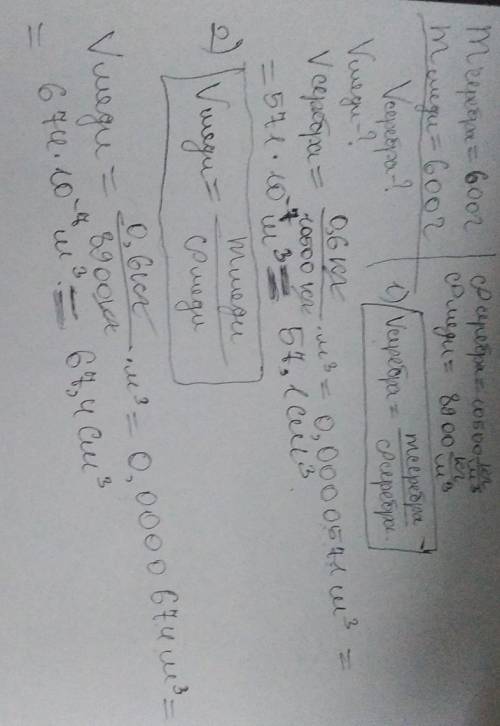 m серебра = 600г
m меди = 600г
V серебра-?
V меди-?
ρ серебра = 10500 кг/м³
ρ меди = 8900 кг/м³
1) V серебра = m серебра / ρ серебра
V серебра = 0,6 кг / 10500 кг · м³ = 0,0000571 м³ =
= 571 · 10⁻⁷ м³ = 57,1 см³.
2) V меди = m меди / ρ меди
V меди = 0,6 кг / 8900 кг · м³ = 0,0000674 м³ =
= 674 · 10⁻⁷ м³ = 67,4 см³